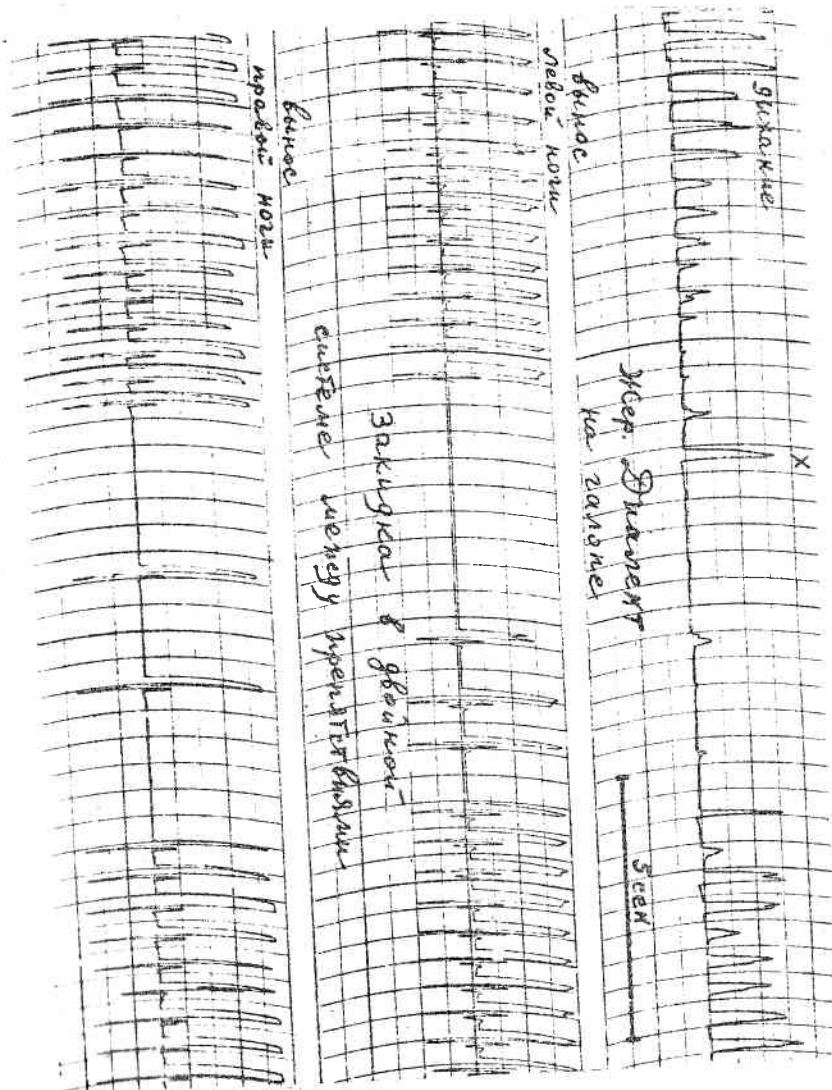 дыхание
х
Жер. Диамент
на галопе
5 сек
вынос
левой ноги
Закидка в двойной
системе между препятствиями
вынос
правой ноги